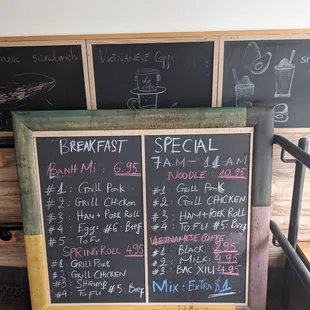 VIETNAMESE COFFEE
BREAKFAST
BANH MI: 6.95
#1: GRILL PORK
#2: GRILL CHICKEN
#3: HAM + PORK ROLL
#4: EGG! #6: BEEF
#5: TOFU
SPRING ROLL 4.95
#1: GRILL PORK
#2: GRILL CHICKEN
#3: SHRIMP
#4: TOFU #5: BEEF
SPECIAL
7AM-11AM
NOODLE 10.95
#1: GRILL PORK
#2: GRILL CHICKEN
#3: HAM + PORK ROLL
#4: TOFU #5: BEEF
VIETNAMESE COFFEE
#1: BLACK 4.95
#2: MILK 4.95
#3: BAC XIU 4.95
MIX: EXTRA $1